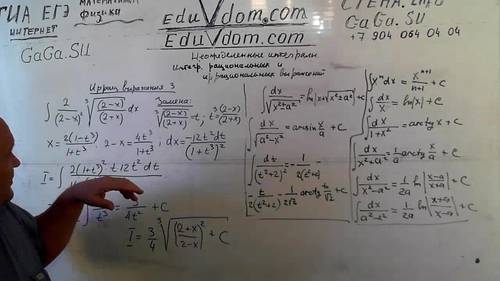 ГИА ЕГЭ
ИНТЕРНЕТ
GaGa.SU
МАТЕМАТИКА
физика
EduVdom.com
EduVdom.com
GaGa.SU
+7 904 064 04 04
Неопределенные интегралы
интегр. рациональных и
иррациональных выражений
Ирриц выражения 3
∫ 2/(2-x)² ∛((2-x)/(2+x)) dx
Замена:
∛((2-x)/(2+x)) = t; t³ = (2-x)/(2+x)
x = 2(1-t³)/(1+t³) 2-x = 4t³/(1+t³); dx = -12t²dt/(1+t³)²
I = ∫ 2(1+t³)² t 12t²dt
4t² + C
I = 3/4 ∛((2+x)/(2-x))² + C
∫ dx/√(x²±a²) = ln|x+√(x²±a²)| + C
∫ dx/√(a²-x²) = arcsin x/a + C
∫ dt/(t²+2)² =
t/2(t²+2) - 1/2√2 arctg t/√2 + C
∫ xⁿdx = xⁿ⁺¹/(n+1) + C
∫ dx/x = ln|x| + C
∫ dx/(1+x²) = arctg x + C
∫ dx/(x²+a²) = 1/a arctg x/a + C
∫ dx/(x²-a²) = 1/2a ln|(x-a)/(x+a)| + C
∫ dx/(a²-x²) = 1/2a ln|(x+a)/(x-a)| + C